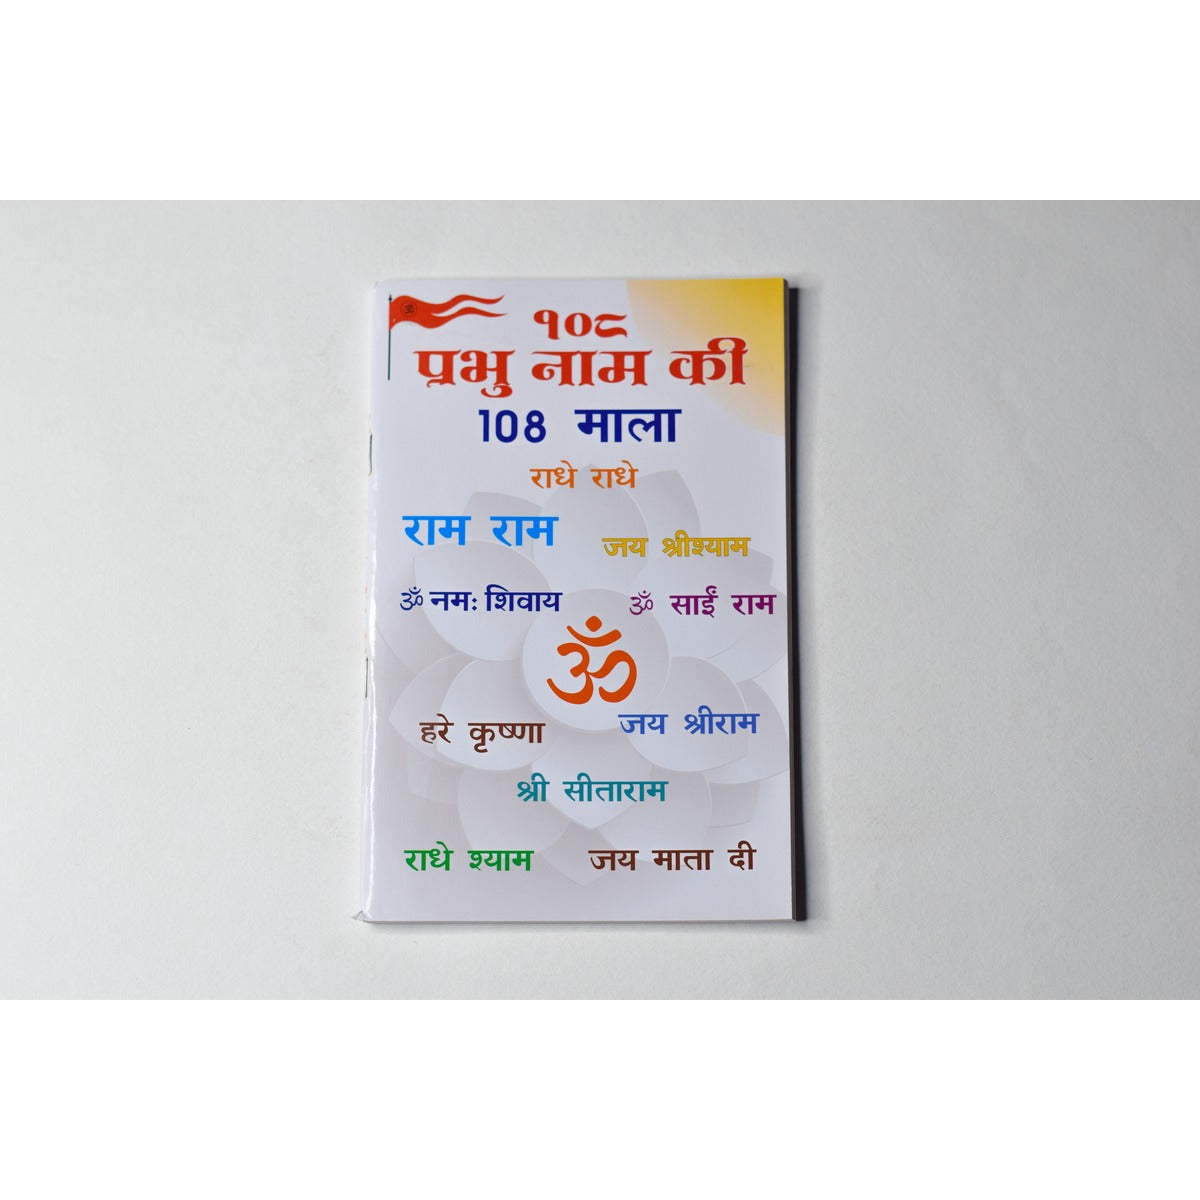 ॐ
१०८
प्रभु नाम की
108 माला
राधे राधे
राम राम
जय श्रीश्याम
ॐ नमः शिवाय
ॐ साईं राम
ॐ
हरे कृष्णा
जय श्रीराम
श्री सीताराम
राधे श्याम
जय माता दी